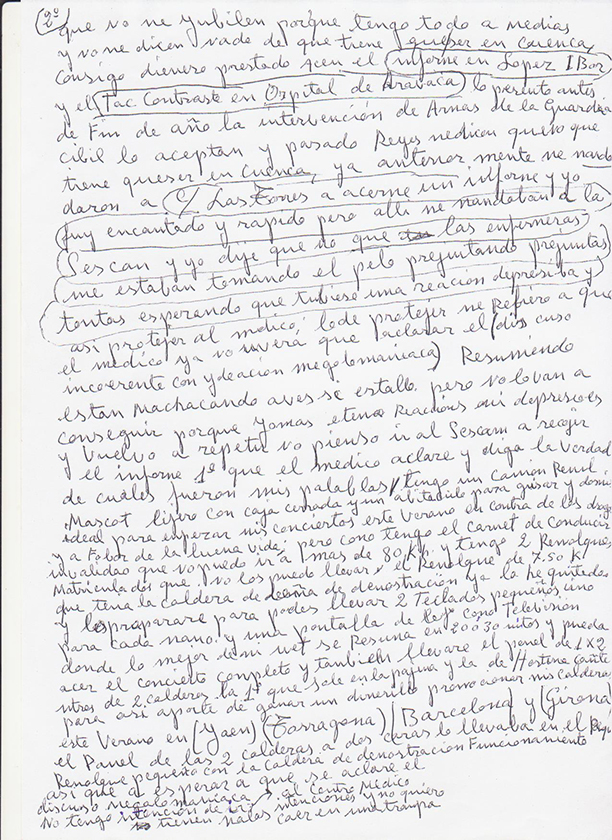 2º
que no me yubilen porque tengo todo a medias
y no me dicen nada de que tiene que ser en Cuenca,
Consigo dienero prestado acen el informe en Lopez IBor
y el Tac. Contraste en Ospital de Aravaca lo perento antes
de Fin de año la intervención de Armas de la Guardia
cibil lo aceptan y pasado Reyes me dicen quero que
tiene que ser en Cuenca, ya anterior mente me manda
daron a C/ Las Torres a acerme un informe y yo
fuy encantado y rapido pero alli me mandaban a la
Sescan y yo dije que no que las enfermeras
me estaban tomando el pelo preguntando preguntas
tontas esperando que tubiese una reación depresiba y
asi protejer al medico, lo de protejer me Refiero a que
el medico ya no tuvera que aclarar el (dis cuso
incoerente con ydeación megolomaniaca) Resumiendo
estan Machacando a ver si estallo pero no lo van a
conseguir porque yo mas etena Reacciones ni depresiones
y Vuelvo a repetir no pienso ir al Sescam a recojir
el informe 1º que el medico aclare y diga la Verdad
de cuales fueron mis palablas, tengo un camion Renul
Mascot lijero con caja cerrada y un abitaculo para guisar y dormi
ideal para enpezar mis conciertos este Verano en contra de las drogas
y a Fabor de la buena vida, pero como tengo el Carnet de Conducir
invalidao que no puedo ir a mas de 80 K. y tengo 2 Remolques
Matriculados que no los puedo llevar, el Remolque de 750 K
que tena la caldera de leña de demostración ya la he quitado
y lo prepararé para poder llevar 2 Teclados pequeños uno
para cada mano, y una pantalla de como Television
donde lo mejor de mi wet se Resuma en 20 o 30 mitos y pueda
acer el concierto completo y tambien llevare el panel de 1 X 2
mtros de 2 calderas la 1ª que sale en la pajina y la de
para asi aporte de ganar un dinerillo promocionar mis calderas
este Verano en (Yaen) (Tarragona) (Barcelona) y (Girona)
el Panel de las 2 calderas a dos caras lo llevaba en el
Remolque pequeño con la caldera de demostracion Funcionamiento
asi que a esperar a que se aclare el
discuso megalomaniaca,
No tengo intención de ir al Centro Medico
tienen malas intenciones y no quiero
caer en una trampa